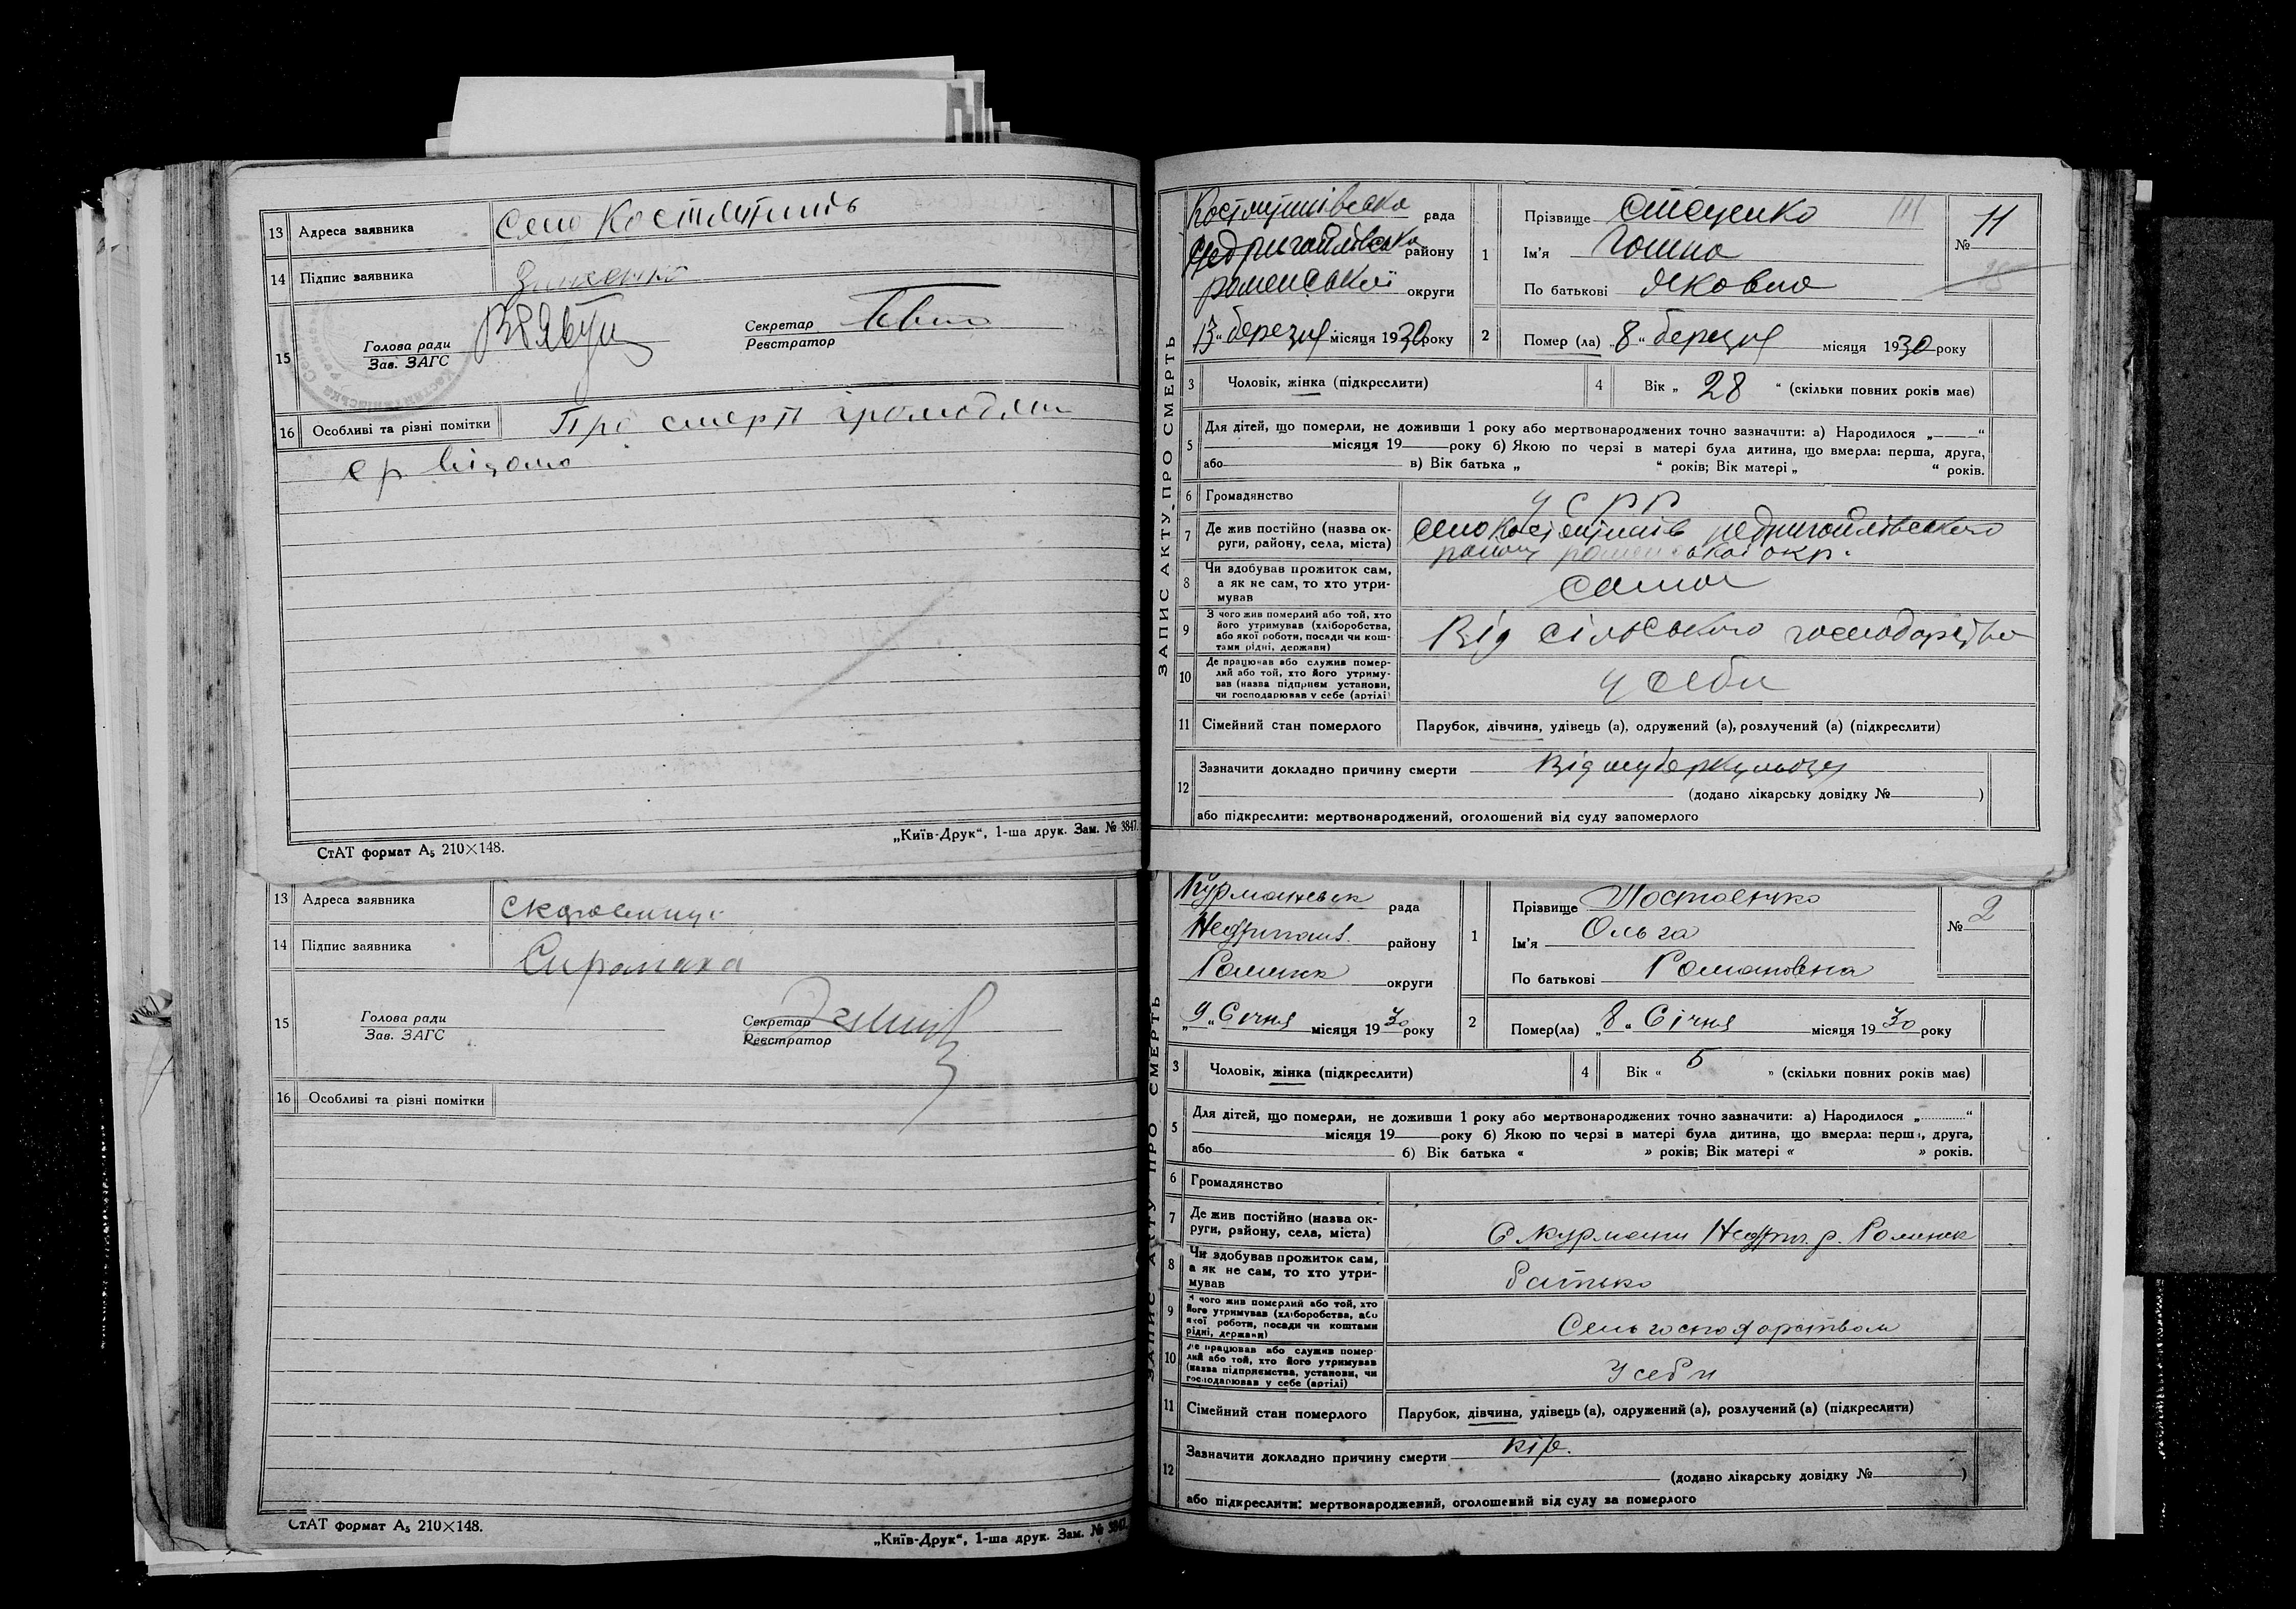 13 Адреса заявника Село Костянтинів
14 Підпис заявника
15 Голова ради Секретар
Зав. ЗАГС Реєстратор
16 Особливі та різні помітки Про смерть громадян
відомо
СтАТ формат А₅ 210×148.
„Київ-Друк“, 1-ша друк. Зам. № 3847.
ЗАПИС АКТУ ПРО СМЕРТЬ
Костянтинівська рада
Недригайлівська району
роменської округи
13 “ березня місяця 1930 року
1 Прізвище Стеценко
Ім'я
По батькові Яковна
№ 11
2 Помер (ла) „ 8 “ березня місяця 1930 року
3 Чоловік, жінка (підкреслити)
4 Вік „ 28 “ (скільки повних років має)
5 Для дітей, що померли, не доживши 1 року або мертвонароджених точно зазначити: а) Народилося „ “
місяця 19 року б) Якою по черзі в матері була дитина, що вмерла: перша, друга,
або в) Вік батька „ “ років; Вік матері „ “ років.
6 Громадянство УСРР
7 Де жив постійно (назва округи, району, села, міста) село Костянтинів недригайлівського
району роменської окр.
8 Чи здобував прожиток сам,
а як не сам, то хто утри-
мував сама
9 З чого жив померлий або той, хто
його утримував (хліборобства,
або якої роботи, посади чи кош-
тами рідні, держави) Від сільського господарства
10 Де працював або служив помер-
лий або той, хто його утриму-
вав (назва підприєм установи,
чи господарював у себе (артілі) у себе
11 Сімейний стан померлого Парубок, дівчина, удівець (а), одружений (а), розлучений (а) (підкреслити)
12 Зазначити докладно причину смерти Від туберкульозу
(додано лікарську довідку № )
або підкреслити: мертвонароджений, оголошений від суду запомерлого
13 Адреса заявника
14 Підпис заявника Сиромаха
15 Голова ради Секретар
Зав. ЗАГС Реєстратор
16 Особливі та різні помітки
СтАТ формат А₅ 210×148.
„Київ-Друк“, 1-ша друк. Зам. № 3847.
ЗАПИС АКТУ ПРО СМЕРТЬ
рада
району
округи
„ 9 “ Січня місяця 1930 року
1 Прізвище
Ім'я Ольга
По батькові Романовна
№ 2
2 Помер(ла) „ 8 “ Січня місяця 1930 року
3 Чоловік, жінка (підкреслити)
4 Вік “ 5 ” (скільки повних років має)
5 Для дітей, що померли, не доживши 1 року або мертвонароджених точно зазначити: а) Народилося „ “
місяця 19 року б) Якою по черзі в матері була дитина, що вмерла: перша, друга,
або б) Вік батька « » років; Вік матері « » років.
6 Громадянство
7 Де жив постійно (назва ок-
руги, район, села, міста) С Курмани Недриг. р. Роменск
8 Чи здобував прожиток сам,
а як не сам, то хто утри-
мував батько
9 З чого жив померлий або той, хто
його утримував (хліборобства, або
якої роботи, посади чи коштами
рідні, держави) Сельгосподарством
10 Де працював або служив помер-
лий або той, хто його утримував
(назва підприємства, установи, чи
господарював у себе (артілі) У себе
11 Сімейний стан померлого Парубок, дівчина, удівець (а), одружений (а), розлучений (а) (підкреслити)
12 Зазначити докладно причину смерти кір.
(додано лікарську довідку № )
або підкреслити: мертвонароджений, оголошений від суду за померлого